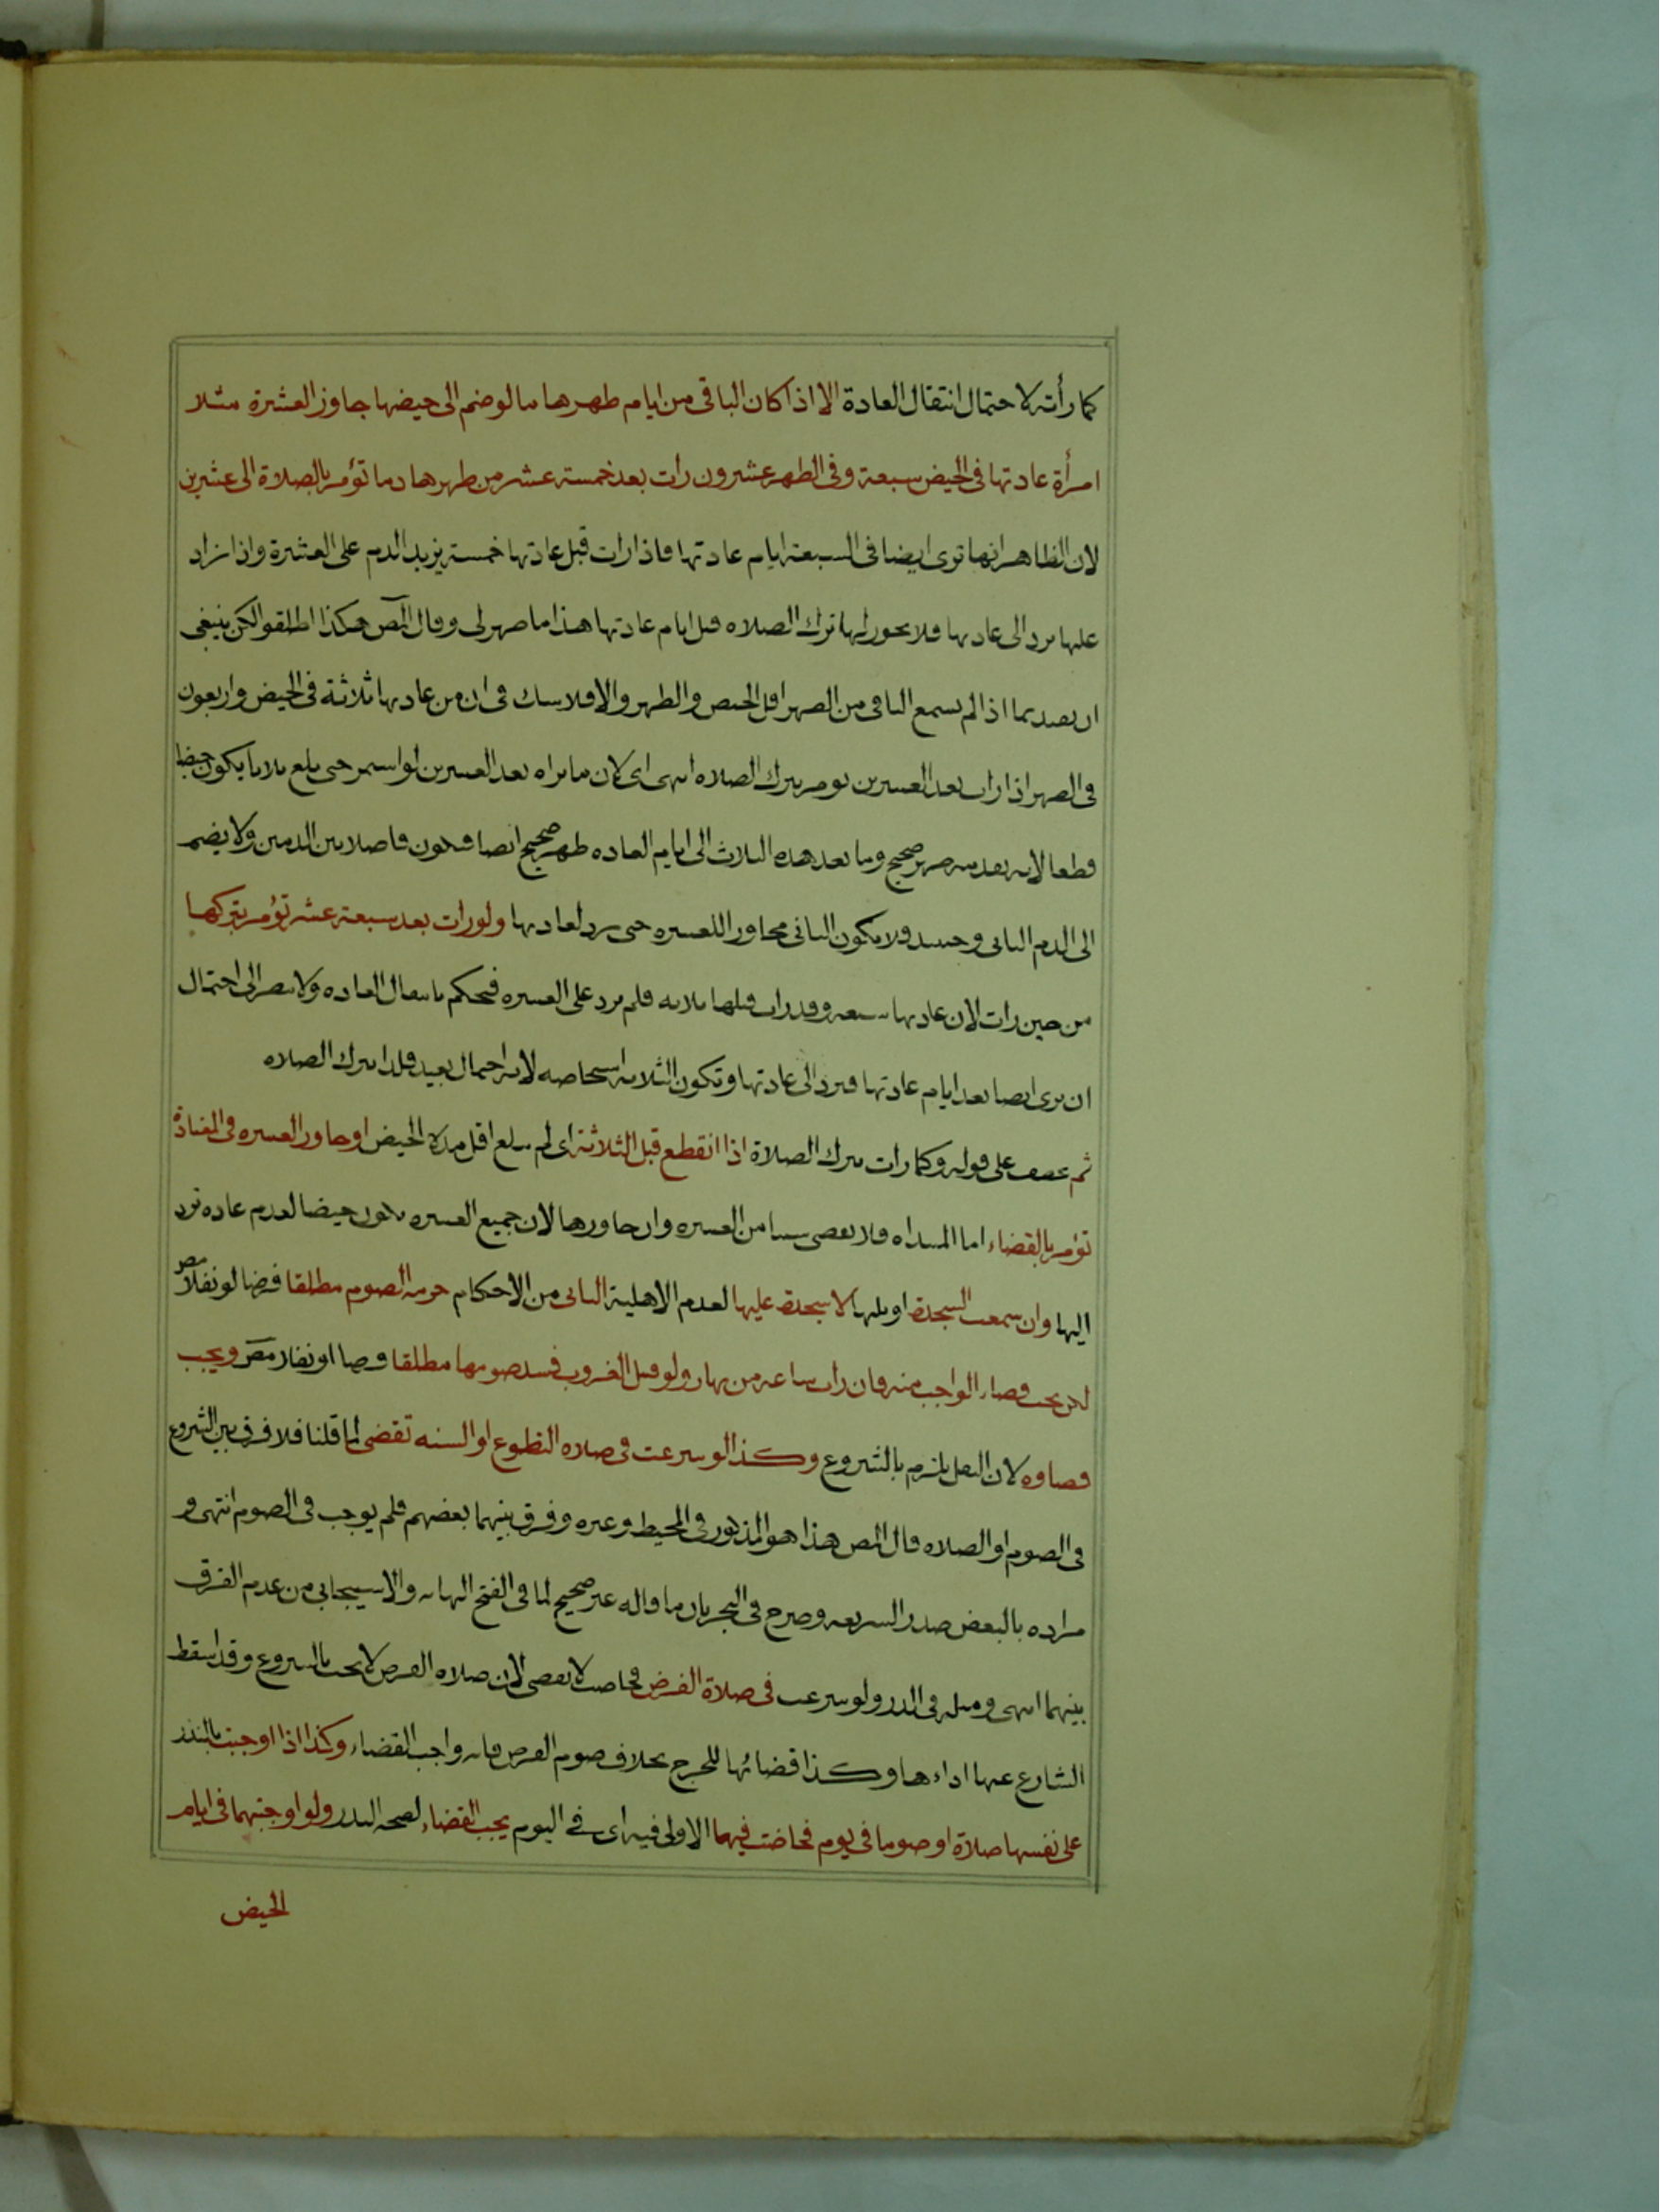 كما رأته لاحتمال انتقال العادة الا اذا كان الباقى من ايام طهرها ما لو ضم الى حيضها جاوز العشرة مثلا
امرأة عادتها فى الحيض سبعة وفى الطهر عشرون رات بعد خمسة عشر من طهرها دما تؤمر بالصلاة الى عشرين
لان الظاهر انها ترى ايضا فى السبعة ايام عادتها فاذا رات قبل عادتها خمسة يزيد الدم على العشرة واذا زاد
عليها ترد الى عادتها فلا يجوز لها ترك الصلاه قبل ايام عادتها هذا ما ظهر لى وقال المص هكذا اطلقوا لكن ينبغى
ان يقيد بما اذا لم يسع الباقى من الطهر اقل الحيض والطهر والا فلا شك فى ان من عادتها ثلاثة فى الحيض واربعون
فى الطهر اذا رات بعد العشرين تومر بترك الصلاه انتهى اى لان ما تراه بعد العشرين لو استمر حتى بلغ ثلاثا يكون حيضا
قطعا لانه تقدمه طهر صحيح وما بعد هذه الثلاث الى ايام العاده طهر صحيح ايضا فيكون فاصلا بين الدمين ولا يضم
الى الدم الثانى وحينئذ ولا يكون الثانى مجاوزا للعشره حتى ترد لعادتها ولو رات بعد سبعة عشر تؤمر بتركها
من حين رات لان عادتها سبعه وقد رات قبلها ثلاثه فلم يزد على العشره فيحكم بانتقال العاده ولا ينظر الى احتمال
ان ترى ايضا بعد ايام عادتها فترد الى عادتها وتكون الثلاثه استحاضه لانه احتمال بعيد فلذا تترك الصلاه
ثم عطف على قوله وكما رات تترك الصلاة اذا انقطع قبل الثلاثة اى لم يبلغ اقل مدة الحيض او جاوز العشره فى المعتادة
تؤمر بالقضاء اما المبتداه فلا تقضى شيئا من العشره وان جاوزها لان جميع العشره يكون حيضا لعدم عاده ترد
اليها وان سمعت السجدة او تلتها لا سجدة عليها لعدم الاهلية الثانى من الاحكام حرمة الصوم مطلقا فرضا او نفلا مص
لكن يجب قضاء الواجب منه فان رات ساعة من نهار ولو قبل الغروب فسد صومها مطلقا فرضا او نفلا مص ويجب
قضاوه لان النفل يلزم بالشروع وكذا لو شرعت فى صلاه التطوع او السنه تقضى لما قلنا فلا فرق بين الشروع
فى الصوم او الصلاه قال المص هذا هو المذكور فى المحيط وغيره وفرق بينهما بعضهم فلم يوجب فى الصوم انتهى و
مراده بالبعض صدر الشريعه وصرح فى البحر بان ما قاله غير صحيح لما فى الفتح النهايه والاسبيجابى من عدم الفرق
بينهما انتهى ومثله فى الدر ولو شرعت فى صلاة الفرض فحاضت لا تقضى لان صلاه الفرض لا يجب بالشروع وقد اسقط
الشارع عنها اداءها وكذا قضائها للحرج بخلاف صوم الفرض فانه واجب القضاء وكذا اذا اوجبت بالنذر
على نفسها صلاة او صوما فى يوم فحاضت فيهما الاولى فيه اى فى اليوم يجب القضاء لصحه النذر ولو اوجبتهما فى ايام
الحيض